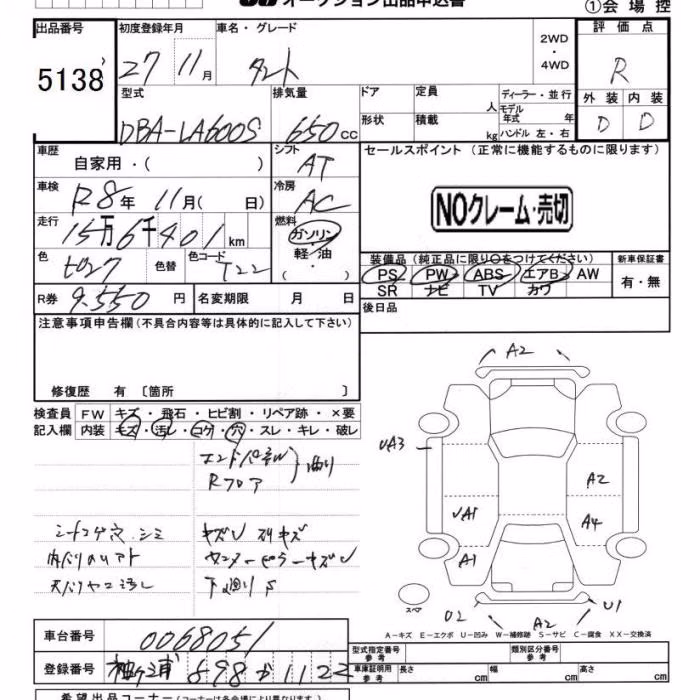 オークション出品申込書
①会場控
出品番号
5138
初度登録年月
27 11月
車名・グレード
タント
2WD
・
4WD
評価点
R
外装 内装
D D
型式
DBA-LA600S
排気量
650cc
ドア
定員
人
ディーラー・並行
モデル年式 年
形状
積載
kg
ハンドル 左・右
車歴
自家用・( )
シフト
AT
セールスポイント(正常に機能するものに限ります)
NOクレーム・売切
車検
R8年 11月( 日)
冷房
AC
走行
15万6千401km
燃料
ガソリン
軽油
・( )
色
色替
色コード
T22
装備品(純正品に限り○をつけてください)
新車保証書
PS PW ABS エアB AW
SR ナビ TV カワ
有・無
R券 9.550円
名変期限 月 日
後日品
注意事項申告欄(不具合内容等は具体的に記入して下さい)
修復歴 有 〔箇所 〕
検査員記入欄
FW キズ・飛石・ヒビ割・リペア跡・×要
内装 キズ・汚レ・コゲ・穴・スレ・キレ・破レ
Rフロア
曲り
シートコゲ穴、シミ
キズU スリキズ
下廻りS
A2
UA3
A2
UA1
A4
A1
スペア
U2
A2
U1
A-キズ E-エクボ U-凹み W-補修跡 S-サビ C-腐食 XX-交換済
車台番号
0068051
登録番号
袖ヶ浦 598 か 1122
型式指定番号 参考
類別区分番号 参考
車庫証明用 参考
長さ cm
幅 cm
高さ cm
希望出品コーナー(コーナーは各会場により異なります)